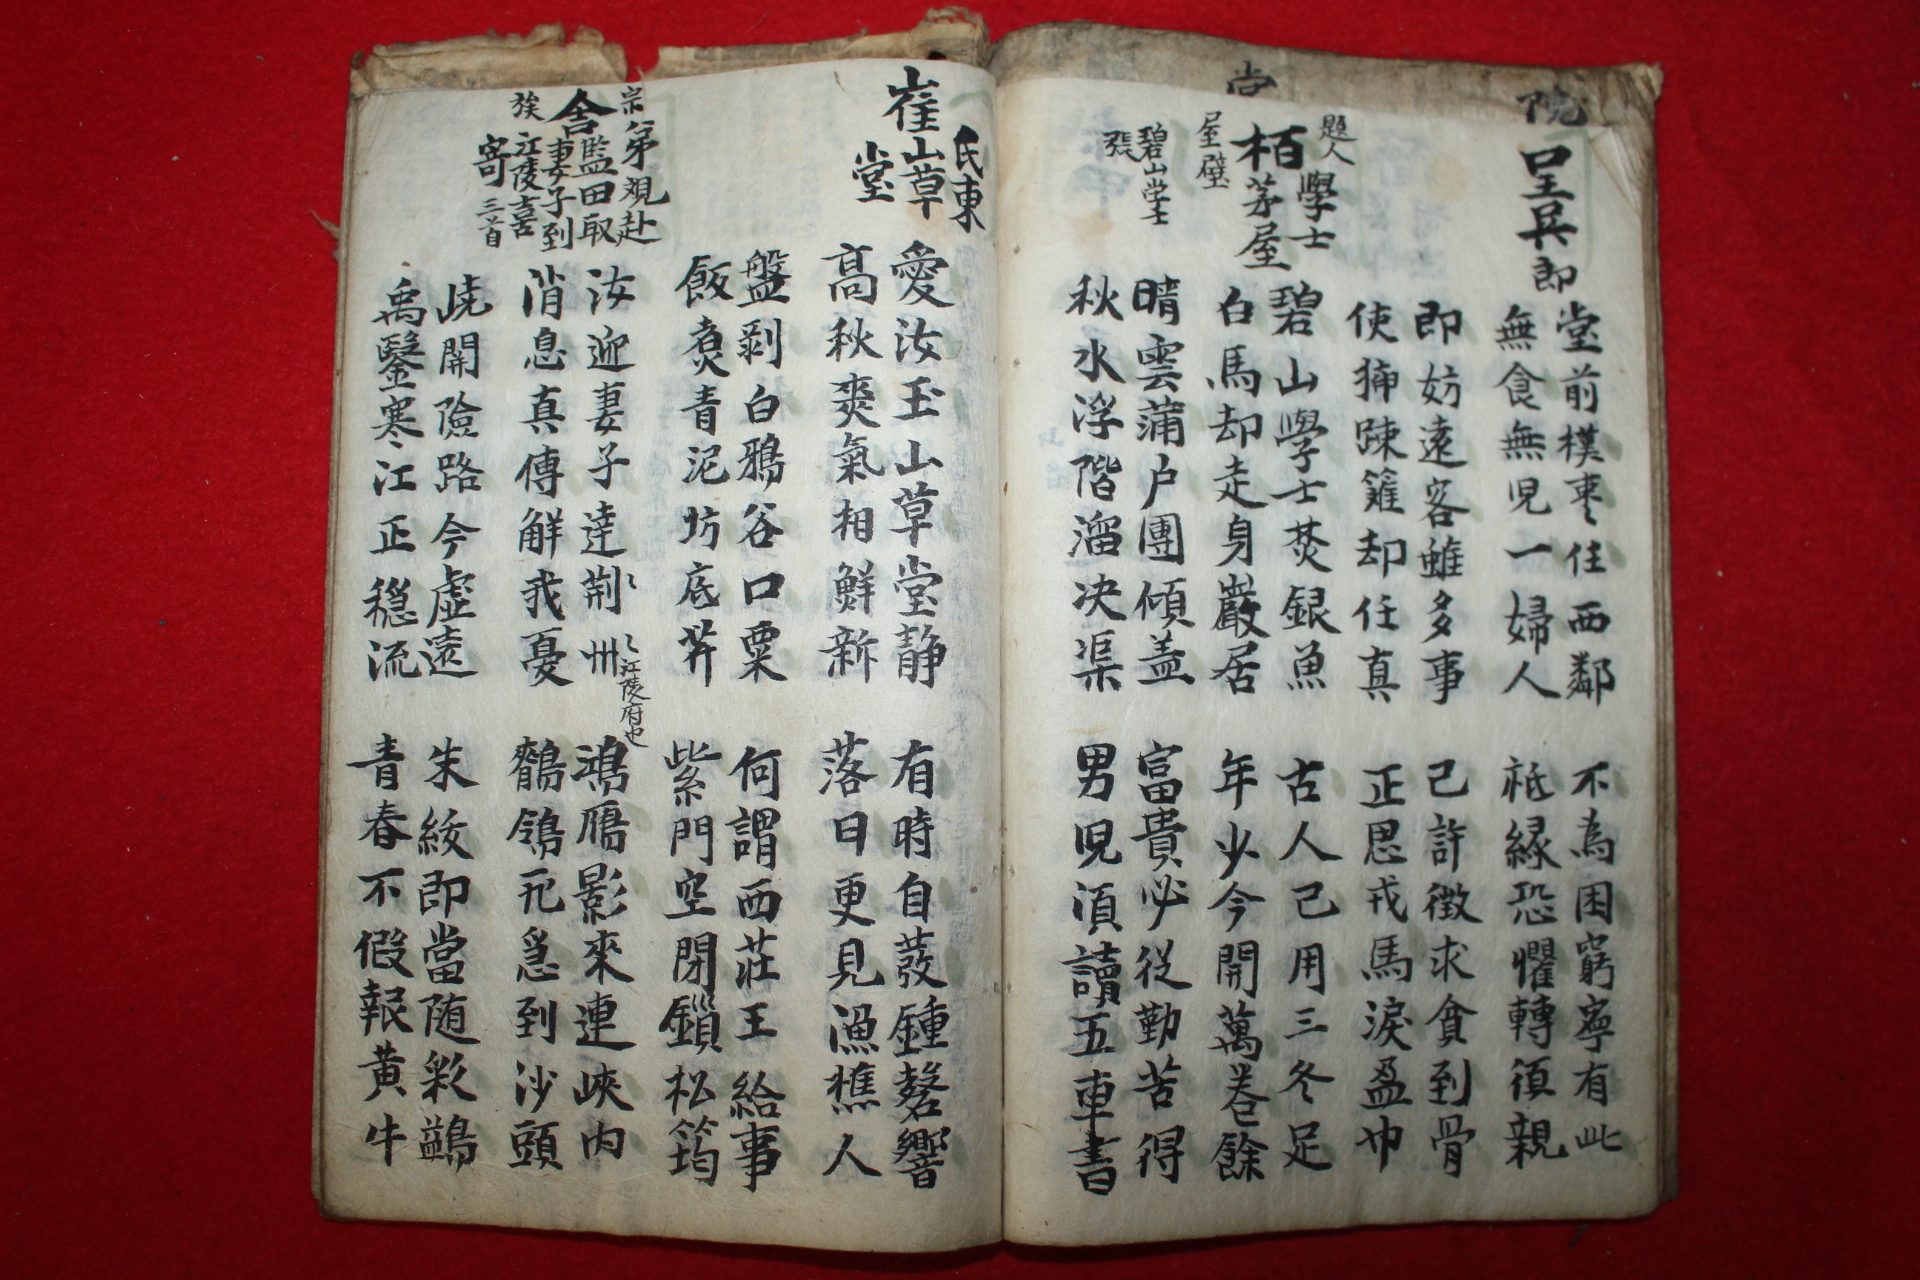 院
呈吳郎
堂前樸枣任西鄰 不為困窮寧有此
無食無児一婦人 祗緣恐懼轉須親
即妨遠客雖多事 已許徵求貪到骨
使揷踈籬却任真 正思戎馬淚盈巾
題人
柏學士
茅屋
屋壁
碧山學士焚銀魚 古人已用三冬足
白馬却走身巖居 年少今開萬卷餘
碧山学士
晴雲蒲户團傾盖 富貴必從勤苦得
秋水浮階溜决渠 男児須讀五車書
崔氏東
山草
堂
愛汝玉山草堂静 有時自發鍾磬響
高秋爽氣相鮮新 落日更見漁樵人
盤剥白鴉谷口粟 何謂西莊王給事
飯煑青泥坊底芹 紫門空閉鎻松筠
宗弟觀赴
舍監田取
妻子到
族江陵喜
寄三首
汝迎妻子達荆州 鴻鴈影來連峽内
江陵府也
消息真傳解我憂 鶺鴒飛急到沙頭
嶢開險路今虛遠 朱紱即當随彩鷁
禹鑿寒江正穩流 青春不假報黄牛